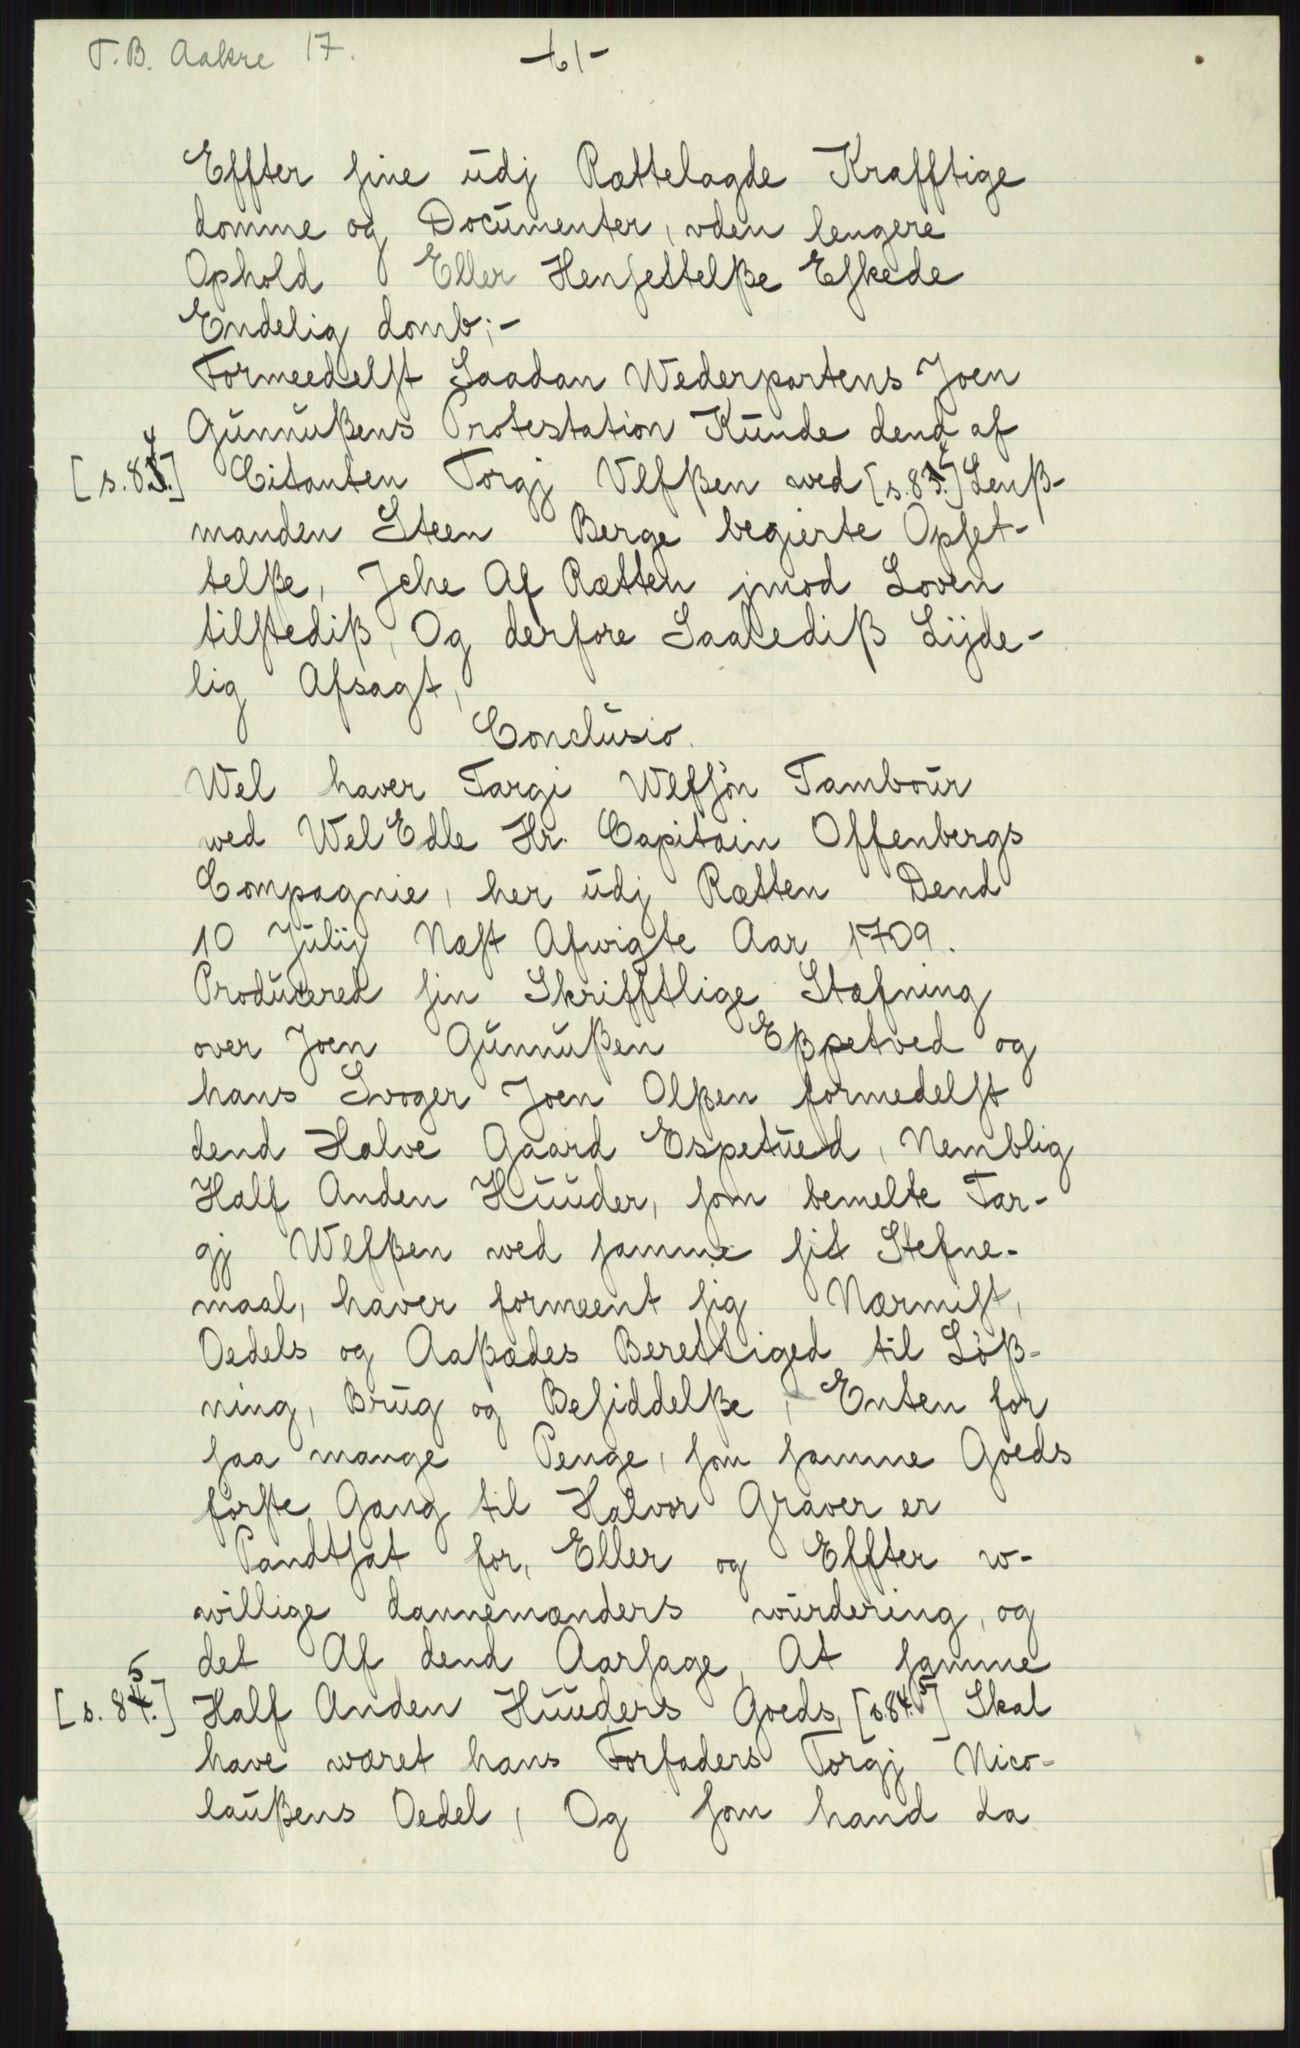 T. B. Aakre 17.
-61-
Effter sine udj Rættelagde Krafftige
domme og Documenter, vden lengere
Ophold Eller Hensettelße Eskede
Endelig domb;-
Formeedelst Saadan Wederpartens Joen
Gunnußens Protestation Kunde dend af
[s. 84.] Citanten Torgj Vlfßen wed [s. 84.] Lenß-
manden Steen Berge begierte Opset-
telße, Jche Af Rætten jmod Loven
tilstediß, Og derfore Saalediß Lijde-
lig Afsagt,
Conclusio.
Wel haver Targi Wlfsøn Tambour
wed WelEdle Hr. Capitain Offenbergs
Compagnie, her udj Rætten Dend
10 Julij Næst Afvigte Aar 1709.
Producered sin Skrifftlige Stæfning
over Joen Gunnußen Eßpetved og
hans Svoger Joen Olßen formedelst
dend Halve Gaard Espetued, Nemblig
Half Anden Huuder, som bemelte Tar-
gj Wlfßen wed samme sit Stefne-
maal, haver formeent sig Nærmist,
Oedels og Aaßædes Berettiged til Løß-
ning, Brug og Besiddelße, Enten for
saa mange Penge, som samme Goeds
første Gang til Halvor Graver er
Pandtsat for, Eller og Effter w-
willige dannemænders wurdering, og
det Af dend Aarsage, At samme
[s. 85.] Half Anden Huuders Goeds, [s. 85] Skal
have wæret hans Forfaders Torgj Nico-
laußens Oedel, Og som hand da